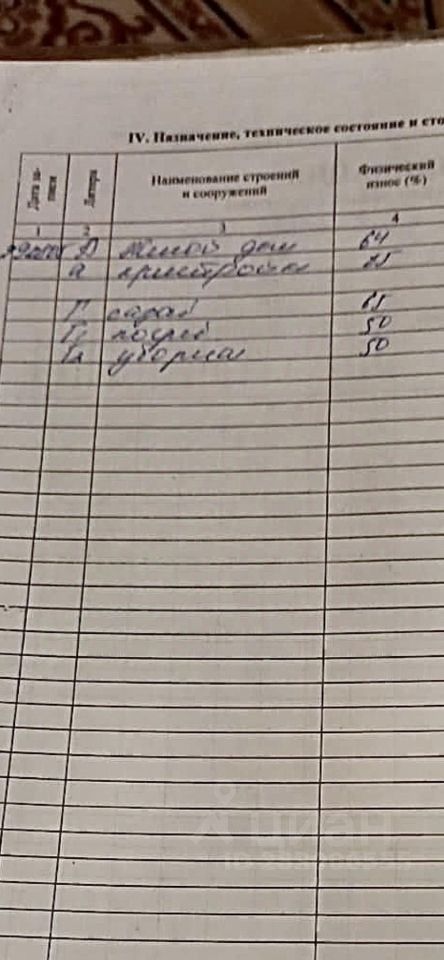 IV. Назначение, техническое состояние и сто
Дата за-
писи
Литера
Наименование строений
и сооружений
Физический
износ (%)
1 2 3 4
жилой дом 64
а пристройка
Г сарай 65
Г1 погреб 50
уборная 50
циан